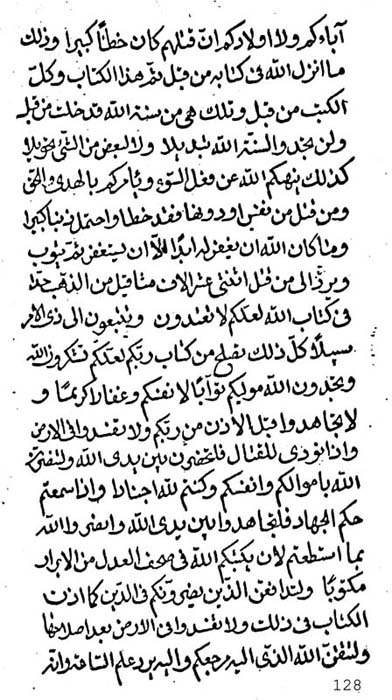 آباءكم ولا اولادكم انّ قتلهم كان خطأً كبيرا وذلك
ما انزل الله فى كتابه من قبل ثمّ هذا الكتاب وكلّ
الكتب من قبل وتلك هى من سنة الله قد خلت من قبل
ولن تجدوا لسنّة الله تبديلا ولا لبعض من الشئ تحويلا
كذلك ينهيكم الله عن فعل السّوء ويأمركم بالهدى والحق
ومن قتل من نفس او دونها فقد خطأ واحتمل ذنبا كبيرا
وما كان الله ان يغفر له ابدًا الّا ان يستغفر ثمّ يتوب
ويردّ الى من قتل اثنتى عشر الاف مثاقيل من الذهب
فى كتاب الله لعلّكم لا تعتدون ويتبعون الى ذى الامر
سبيلًا كلّ ذلك من كتاب ربّكم لعلّكم تشكرون الله
وتجدون الله موليكم توّابًا لانفسكم وغفارا كريمًا و
لا تجاهدوا قبل الاذن من ربّكم ولا تفسدوا فى الارض
واذا نودى للقتال فلتحضرن بين يدى الله ولتنصرنّ
الله باموالكم وانفسكم وكنتم لله اجنادا واذا سمعتم
حكم الجهاد فلتجاهدوا بين يدى الله وانصروا الله
بما استطعتم لان يكتبكم الله فى صحف العدل من الابرار
مكتوبًا ولتدافعنّ الذّين يضرونكم فى الدّين كما اذن
الكتاب فى ذلك ولا تفسدوا فى الارض بعد اصلاحها
ولتتقنّ الله الذّى اليه مرجعكم واليه يردّ علم الساعة وانّه
128